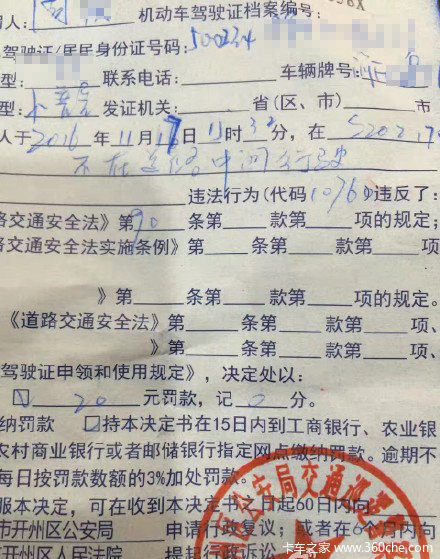 机动车驾驶证档案编号:
驾驶证/居民身份证号码: 500234
型: 联系电话: 车辆牌号:
型: 发证机关: 省(区、市) 市
人于 2016 年 11 月 17 日 11 时 32 分, 在 S202,17
不在道路中间行驶
违法行为(代码 10760 违反了:
路交通安全法》第 90 条第 款第 项的规定;
交通安全法实施条例》第 条第 款第 项
》第 条第 款第 项的规定。
《道路交通安全法》第 条第 款第 项、
》第 条第 款第 项、
驾驶证申领和使用规定》, 决定处以:
☑ 20 元罚款, 记 0 分。
纳罚款 ☑持本决定书在15日内到工商银行、农业银
农村商业银行或者邮储银行指定网点缴纳罚款。逾期不
每日按罚款数额的3%加处罚款。
服本决定, 可在收到本决定书之日起60日内向
市开州区公安局 申请行政复议; 或者在6个月内向
开州区人民法院 提起行政诉讼
州区公安局交通巡逻
卡车之家 www.360che.com